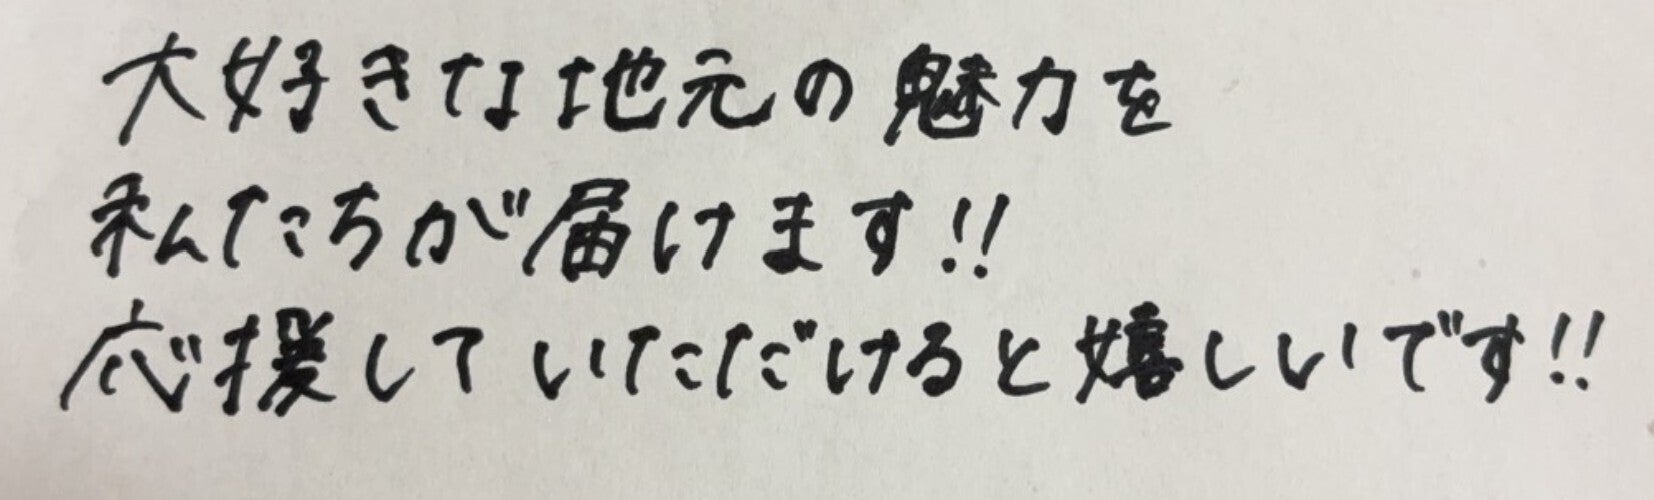 大好きな地元の魅力を
私たちが届けます!!
応援していただけると嬉しいです!!